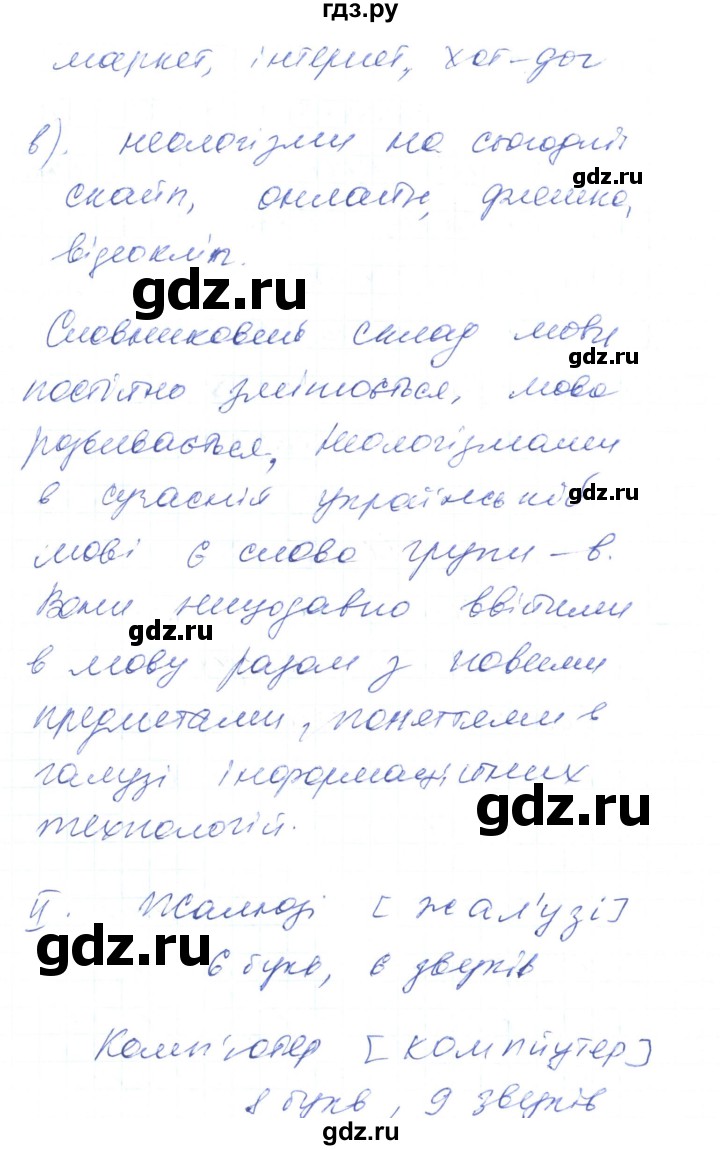 гдз.ру
маркет, інтернет, хот-дог
в). неологізми на сьогодні
gdz.ru
скайп, онлайн, флешка,
відеокліп.
gdz.ru
Словниковий склад мови
gdz.ru
постійно змінюється, мова
розвивається, Неологізмами
в сучасній українській
gdz.ru
мові є слова групи - в.
Вони нещодавно ввійшли
gdz.ru
в мову разом з новими
предметами, поняттями в
галузі інформаційних
gdz.ru
технологій.
II. Жалюзі [жал'узі]
gdz.ru
6 букв, 6 звуків
Комп'ютер [компйутер]
8 букв, 9 звуків
gdz.ru